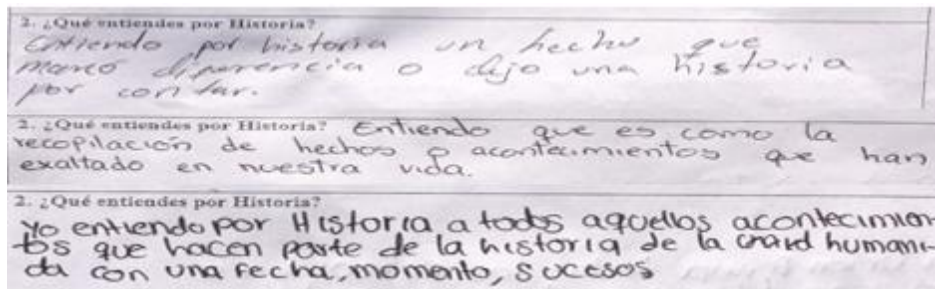 2. ¿Qué entiendes por Historia?
Entiendo por historia un hecho que
marcó diferencia o dejo una historia
por contar.
2. ¿Qué entiendes por Historia? Entiendo que es como la
recopilación de hechos o acontecimientos que han
exaltado en nuestra vida.
2. ¿Qué entiendes por Historia?
Yo entiendo por Historia a todos aquellos acontecimien-
tos que hacen parte de la historia de la humani-
da con una fecha, momento, sucesos